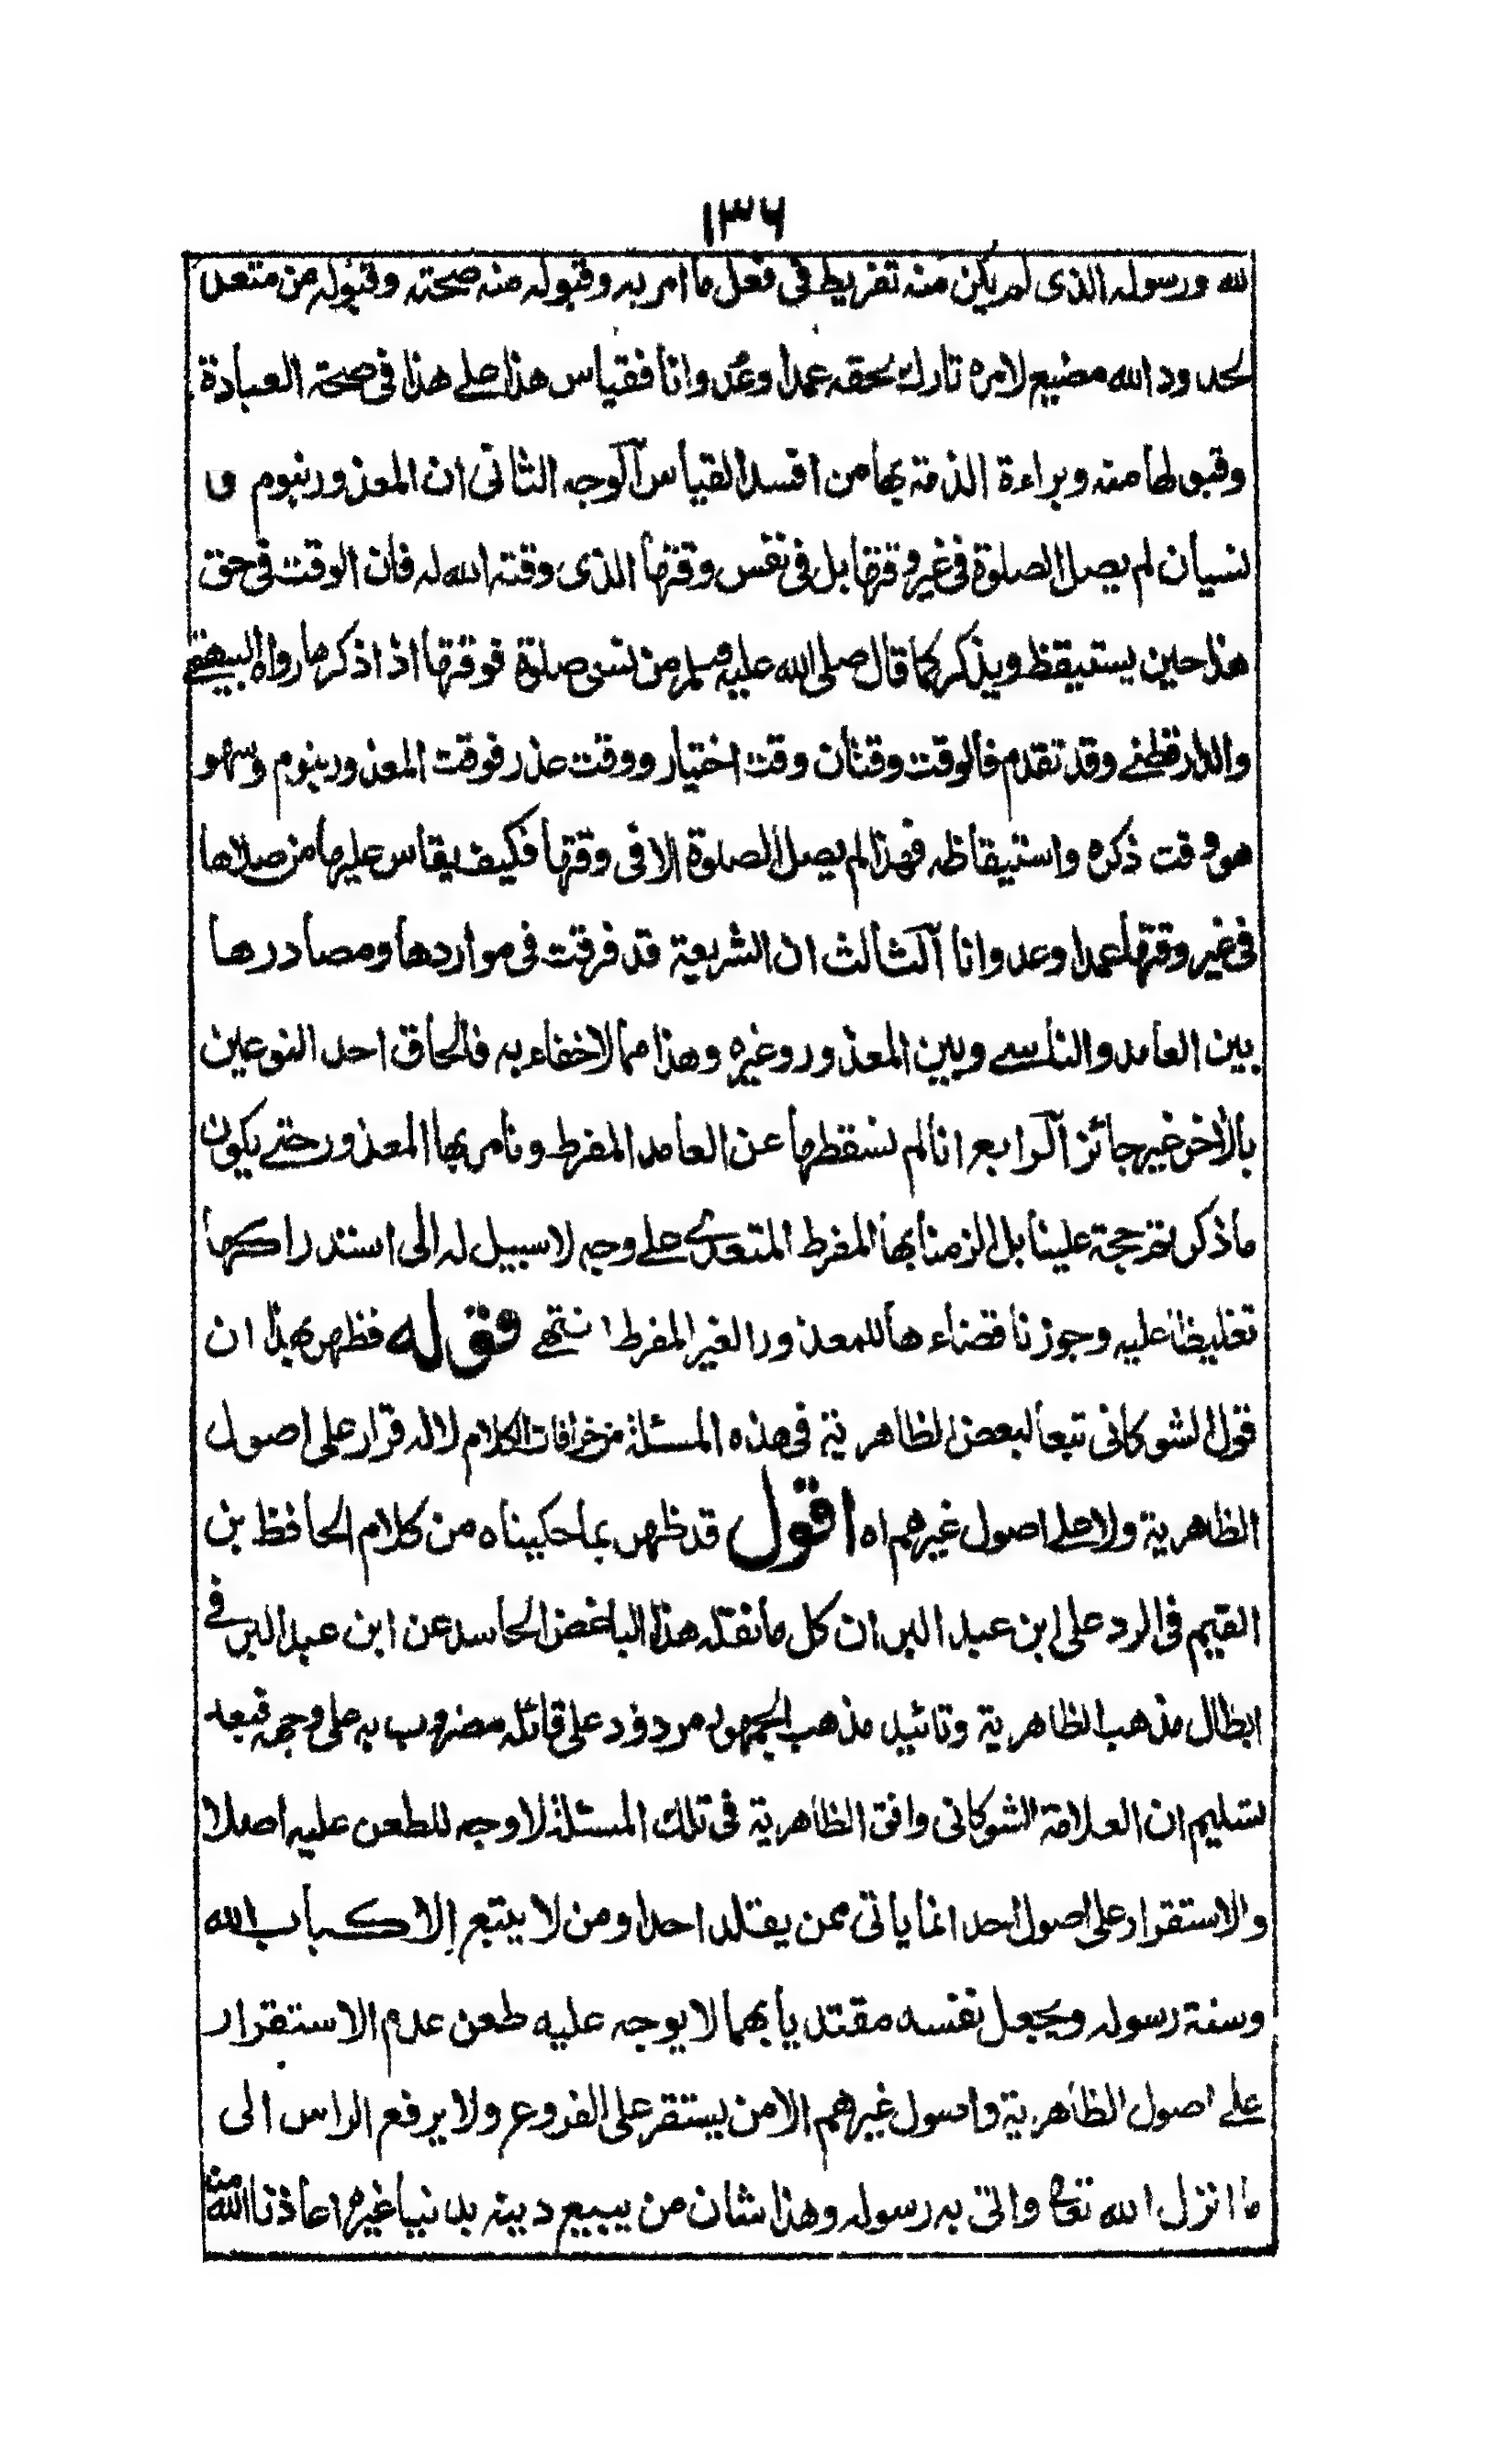 ١٣٦
لله ورسوله الذى لم يكن منه تفريط فى فعل ما امر به وقبوله منه صحته وقبوله من متعد
لحدود الله مضيع لامره تارك بحقه عمدا وعدوانا فقياس هذا على هذا فى صحة العبادة
وقبولها منه وبراءة الذمة بها من افسد القياس الوجه الثانى ان المعذور بنوم و
نسيان لم يصل الصلوة فى غير وقتها بل فى نفس وقتها الذى وقته الله له فان الوقت فى حق
هذا حين يستيقظ ويذكر كما قال صلى الله عليه وسلم من نسى صلوة فوقتها اذا ذكرها رواه البيهقے
والدارقطنے وقد تقدم فالوقت وقتان وقت اختيار ووقت عذر فوقت المعذور بنوم وسهو
هو وقت ذكره واستيقاظه فهذا لم يصل الصلوة الا فى وقتها فكيف يقاس عليها من صلاها
فى غير وقتها عمدا وعدوانا الثالث ان الشريعة قد فرقت فى مواردها ومصادرها
بين العامد والناسے وبين المعذور وغيره وهذا مما لاخفاء به فالحاق احد النوعين
بالأخر غير جائز الرابع انا لم نسقطها عن العامد المفرط ونامر بها المعذور حتے يكون
ما ذكرتم حجة علينا بل الزمنا بها المفرط المتعدے على وجه لا سبيل له الى استدراكها
تغليظا عليه وجوزنا قضاءها للمعذور الغير المفرط انتهے قوله فظهر بهذا ان
قول الشوكانى تبعا لبعض الظاهرية فى هذه المسئلة من خرافات الكلام لا له قرار على اصول
الظاهرية ولا على اصول غيرهم اه اقول قد ظهر بما حكيناه من كلام الحافظ بن
القيم فى الرد على ابن عبد البر ان كل ما نقله هذا الباغض الحاسد عن ابن عبد البر فے
ابطال مذهب الظاهرية وتائيد مذهب الجمهور مردود على قائله مضروب به على وجهه فبعد
تسليم ان العلامة الشوكانى وافق الظاهرية فى تلك المسئلة لا وجه للطعن عليه اصلا
والاستقرار على اصول احد انما ياتى ممن يقلد احدا ومن لا يتبع إلا كتاب الله
وسنة رسوله ويجعل نفسه مقتديا بهما لا يوجه عليه طعن عدم الاستقرار
علے اصول الظاهرية واصول غيرهم الا من يستقر على الفروع ولا يرفع الراس الى
ما انزل الله تعالى واتى به رسوله وهذا شان من يبيع دينه بدنيا غيره اعاذنا الله منه